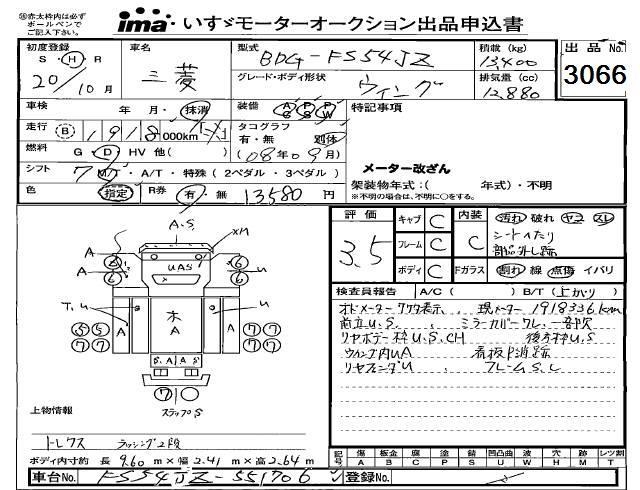 ※赤太枠内は必ず
ボールペンで
ご記入下さい。
ima いすゞモーターオークション出品申込書
初度登録 車名 型式 積載 (kg) 出品No.
S・H・R 三菱 BDG-FS54JZ 13,400
20/10月 グレード・ボディ形状 ウィング 排気量 (cc) 12,880
3066
車検 年 月・抹消 装備 AC PS PW 特記事項
走行 (B) 1918 000km タコグラフ
有・無 別体
燃料 G・D・HV 他( ) (08年09月)
メーター改ざん
シフト 7 M/T・A/T・特殊 (2ペダル・3ペダル) 架装物年式:( 年式)・不明
※不明の場合は、不明に○をする。
色 指定 R券 有・無 13580 円
評価 3.5 キャブ C 内装 C 汚れ 破れ ヤケ スレ
フレーム C シートへたり
部品外し跡
ボディ C Fガラス 割れ 線 点傷 イバリ
検査員報告 A/C ( ) B/T (上かり)
オドメーター ワウタ表示、現メーター 1918336km
前立U.S. ミラーカバーワレ、一部欠
リヤボデー枠U.S.CH 後方枠U.S
ウィング内UA 看板P消跡
リヤフェンダU フレームS.C
A.S.
XH
A A
6 6
6 6
UAS
T.U U
木
A
A A
5 5 7 7
7 7 7 7
S.A A S
7
ステップS
上物情報
トレクス ラッシング2段
ボディ内寸約 長 9.60 m×幅 2.41 m×高 2.64 m
記号 傷 板金 腐 塗 錆 凹凸曲 波 穴 跡 レツ割
A B C P S U W H M T
車台No. FS54JZ-551706 登録No.